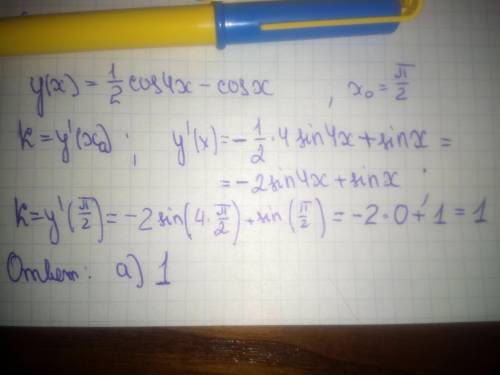 y(x) = 1/2 cos4x - cosx , x₀ = π/2
K = y'(x₀) ; y'(x) = -1/2 · 4 sin4x + sinx =
= -2sin4x + sinx
K = y'(π/2) = -2 sin(4·π/2) + sin(π/2) = -2·0 + 1 = 1
Ответ: а) 1